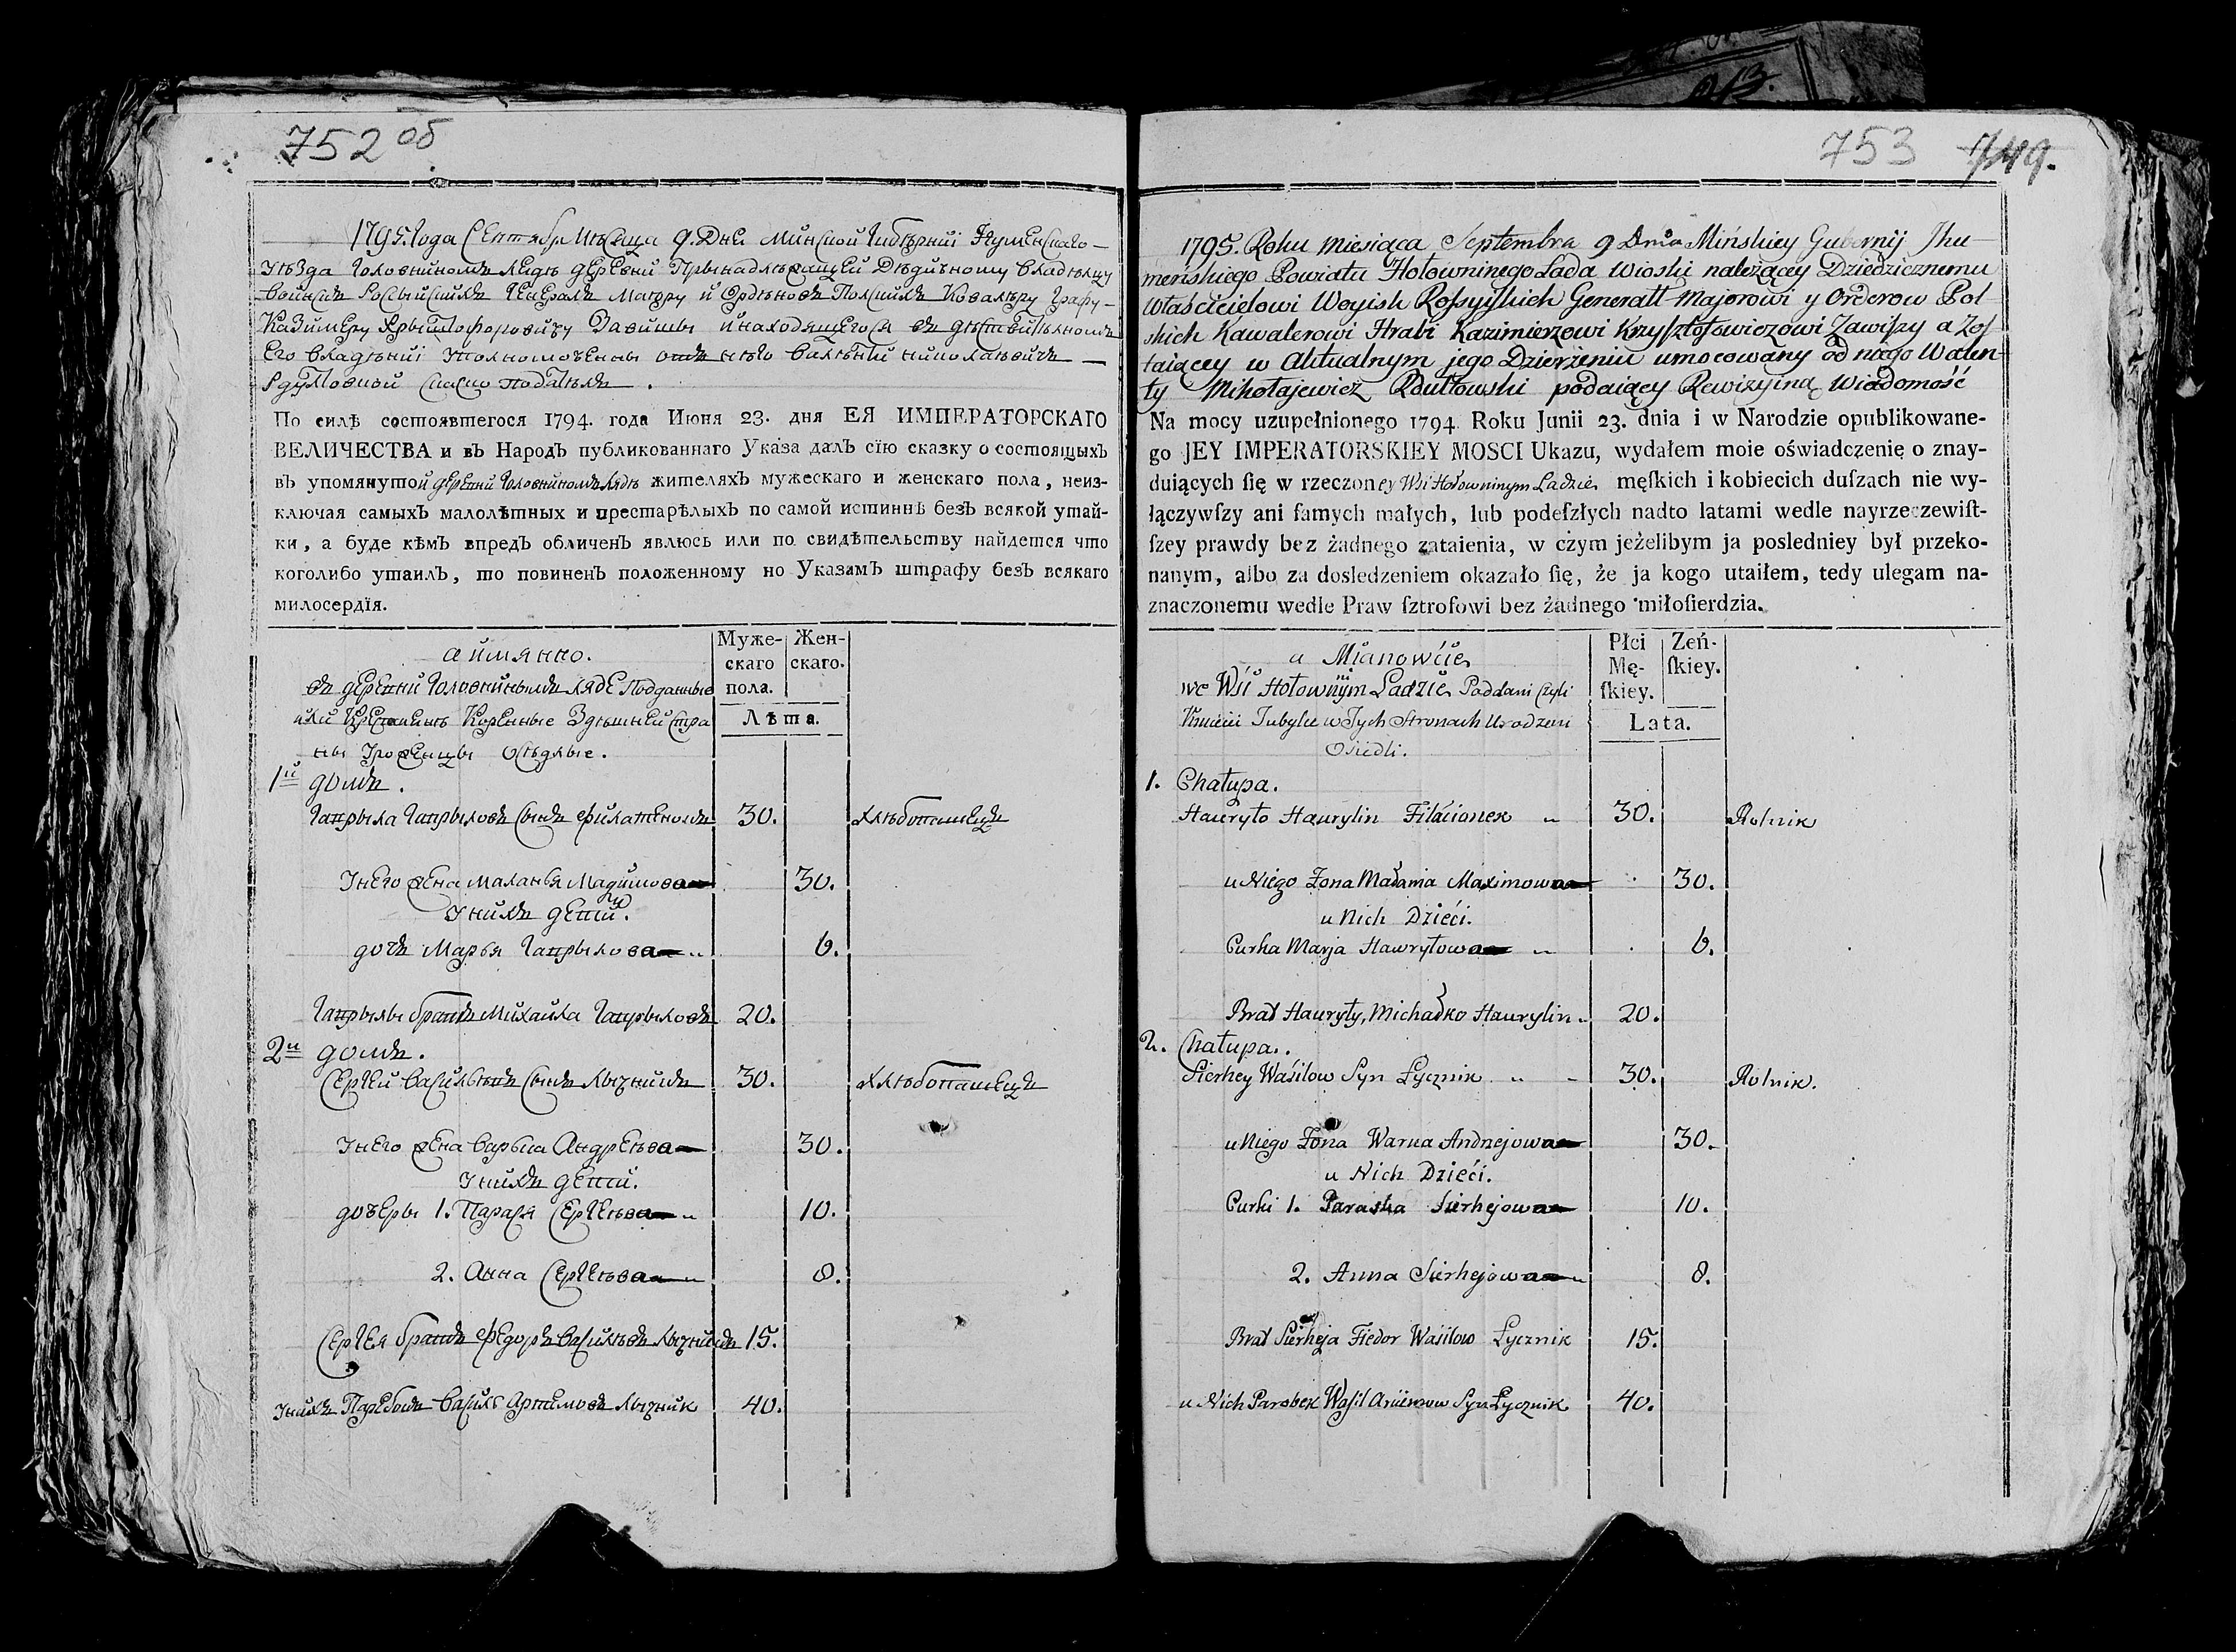 752 об
1795. Года Сентябр Мѣсяца 9. Дня Минской Губѣрнiи Iгуменскаго
Уѣзда Головниномъ Лядѣ деревни Прынадлѣжащей Дѣдичному Владѣлцу
Войскъ Россыйскихъ Генералъ Маiору и Орденовъ Полскихъ Кавалѣру Графу
Казимеру Крыштофоровичу Завишы и находящегося въ дѣйствителномъ
Его владѣнiи Уполномоченны отъ нѣго Валѣнтiй Николаевичъ
Рдултовский
По силѣ состоявшегося 1794. года Июня 23. дня ЕЯ ИМПЕРАТОРСКАГО
ВЕЛИЧЕСТВА и въ Народъ публикованнаго Указа далъ сїю сказку о состоящыхъ
въ упомянутой деревни Головниномъ Лядѣ жителяхъ мужескаго и женскаго пола, неиз-
ключая самыхъ малолѣтных и престарѣлыхъ по самой истиннѣ безъ всякой утай-
ки, а буде кѣмъ впредъ обличенъ явлюсь или по свидѣтельству найдется что
коголибо утаилъ, то повиненъ положенному по Указамъ штрафу безъ всякаго
милосердїя.
а имянно.
Муже-
скаго
пола.
Жен-
скаго.
Лѣта.
въ деревни Головнинымъ Ляде Подданные
или Крестьянѣ Коренные Здѣшней Стра
ны Урожениы Осѣдлые.
1й домъ.
Гапрыла Гапрыловъ Сынъ Филатенокъ 30. хлѣбопашецъ
У него жена Маланья Мацимова 30.
У нихъ дети.
дочъ Марья Гапрылова 6.
Гапрылы братъ Михайла Гапрыловъ 20.
2й домъ.
Сергей Васильевъ Сынъ Лычникъ 30. хлѣбопашецъ
У него жена Варька Андреѣва 30.
У нихъ дети.
дочеры 1. Парася Сергеѣва 10.
2. Анна Сергеѣва 8.
Сергея братъ Федоръ Васильевъ Лычникъ 15.
У нихъ Паребокъ Василь Артимовъ Лычник 40.
753 749.
1795. Roku Miesiąca Septembra 9 Dnia Mińskiey Gubernij Jhu-
meńskiego Powiatu Hołowninego Lada Wioski należącey Dziedzicznemu
Właścicielowi Woysk Roſsyyſkich Generałł Majorowi y Orderow Pol
skich Kawalerowi Hrabi Kazimierzowi Krzyſztofowiczowi Zawiſzy a Zoſ
taiącey w Aktualnym jego Dzierżeniu umocowany od niego Walen-
ty Mikołajewicz Rdułtowski podaiący Rewizyiną Wiadomość
Na mocy uzupełnionego 1794. Roku Junii 23. dnia i w Narodzie opublikowane-
go JEY IMPERATORSKIEY MOSCI Ukazu, wydałem moie oświadczenię o znay-
duiących ſię w rzeczoney Wsi Hołowninym Ladzie męſkich i kobiecich duſzach nie wy-
łączywſzy ani ſamych małych, lub podeſzłych nadto latami wedle nayrzeczewiſt-
ſzey prawdy bez żadnego zataienia, w czym jeżelibym ja posledniey był przeko-
nanym, albo za dosledzeniem okazało ſię, że ja kogo utaiłem, tedy ulegam na-
znaczonemu wedle Praw ſztrofowi bez żadnego miłoſierdzia.
a Mianowcie
Płci
Mę-
ſkiey.
Zeń-
ſkiey.
Lata.
we Wsi Hołowninym Ladzie Paddani Czyli
Kmiecie Tubylce w Tych Stronach Urodzeni
Osiedli.
1. Chałupa.
Hauryło Haurylin Filacionek 30. Rolnik
u Niego Zona Małania Maximowa 30.
u Nich Dzieći.
Curka Marja Hawryłowa 6.
Brat Hauryły, Michałko Haurylin 20.
2. Chałupa.
Sierhey Waśilow Syn Łycznik 30. Rolnik.
u Niego Zona Warka Andrejowa 30.
u Nich Dzieći.
Curki 1. Paraska Sierhejowa 10.
2. Anna Sierhejowa 8.
Brat Sierheja Fiedor Waśilow Łycznik 15.
u Nich Parobek Waſil Arciemow Syn Łycznik 40.